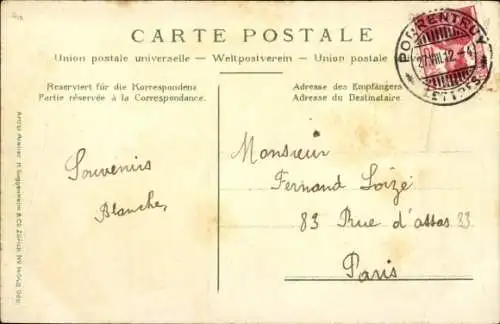 CARTE POSTALE
PORRENTRUY
27.VIII.12.-4
LETTRES
Union postale universelle — Weltpostverein — Union postale
Reserviert für die Korrespondenz
Partie réservée à la Correspondance.
Adresse des Empfängers
Adresse du Destinataire.
Souvenirs
Blanche
Monsieur
Fernand Loizé
83 Rue d'assas 83
Paris